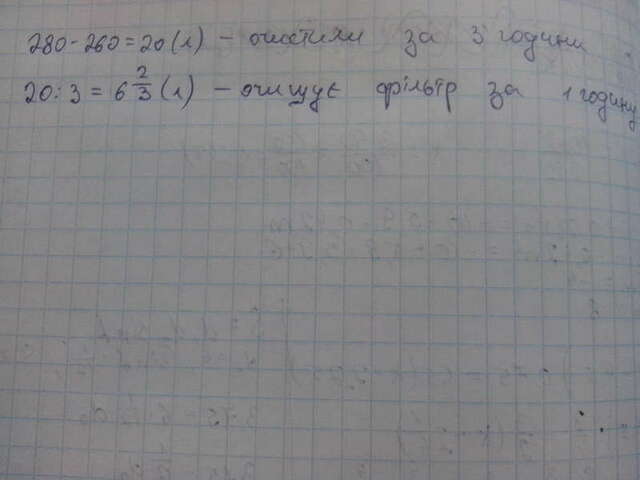 280-260=20(л) - очистили за 3 години
20:3=6 2/3 (л) - очищує фільтр за 1 годину